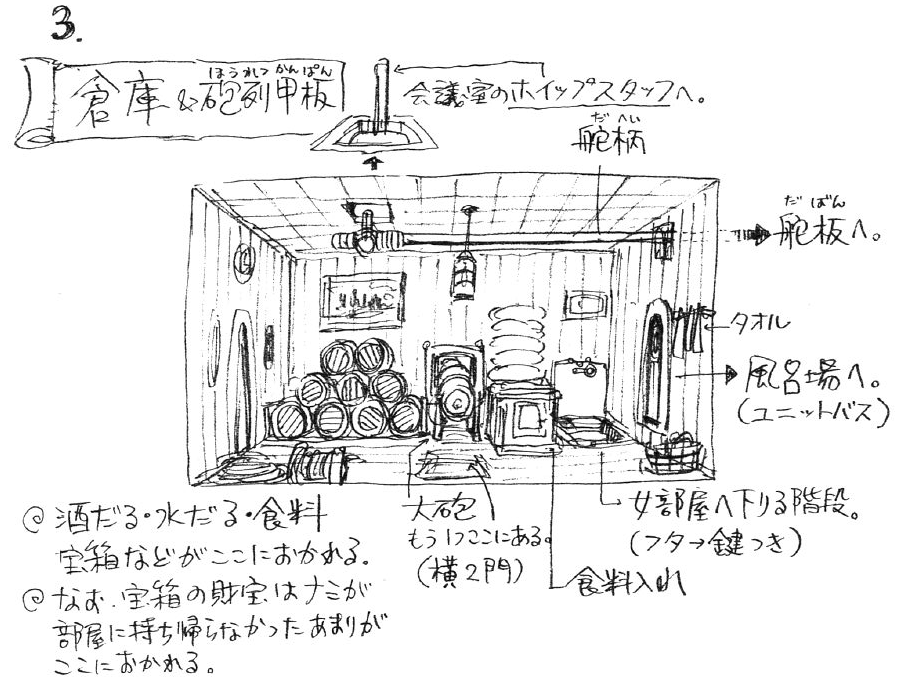 3.
倉庫&砲列甲板
ほうれつ かんぱん
会議室のホイップスタッフへ。
だへい
舵柄
だ ばん
舵板へ。
タオル
風呂場へ。
(ユニットバス)
@ 酒だる・水だる・食料
宝箱などがここにおかれる。
@ なお、宝箱の財宝はナミが
部屋に持ち帰らなかったあまりが
ここにおかれる。
大砲
もう1つここにある。
(横2門)
食料入れ
女部屋へ下りる階段。
(フタ→鍵つき)